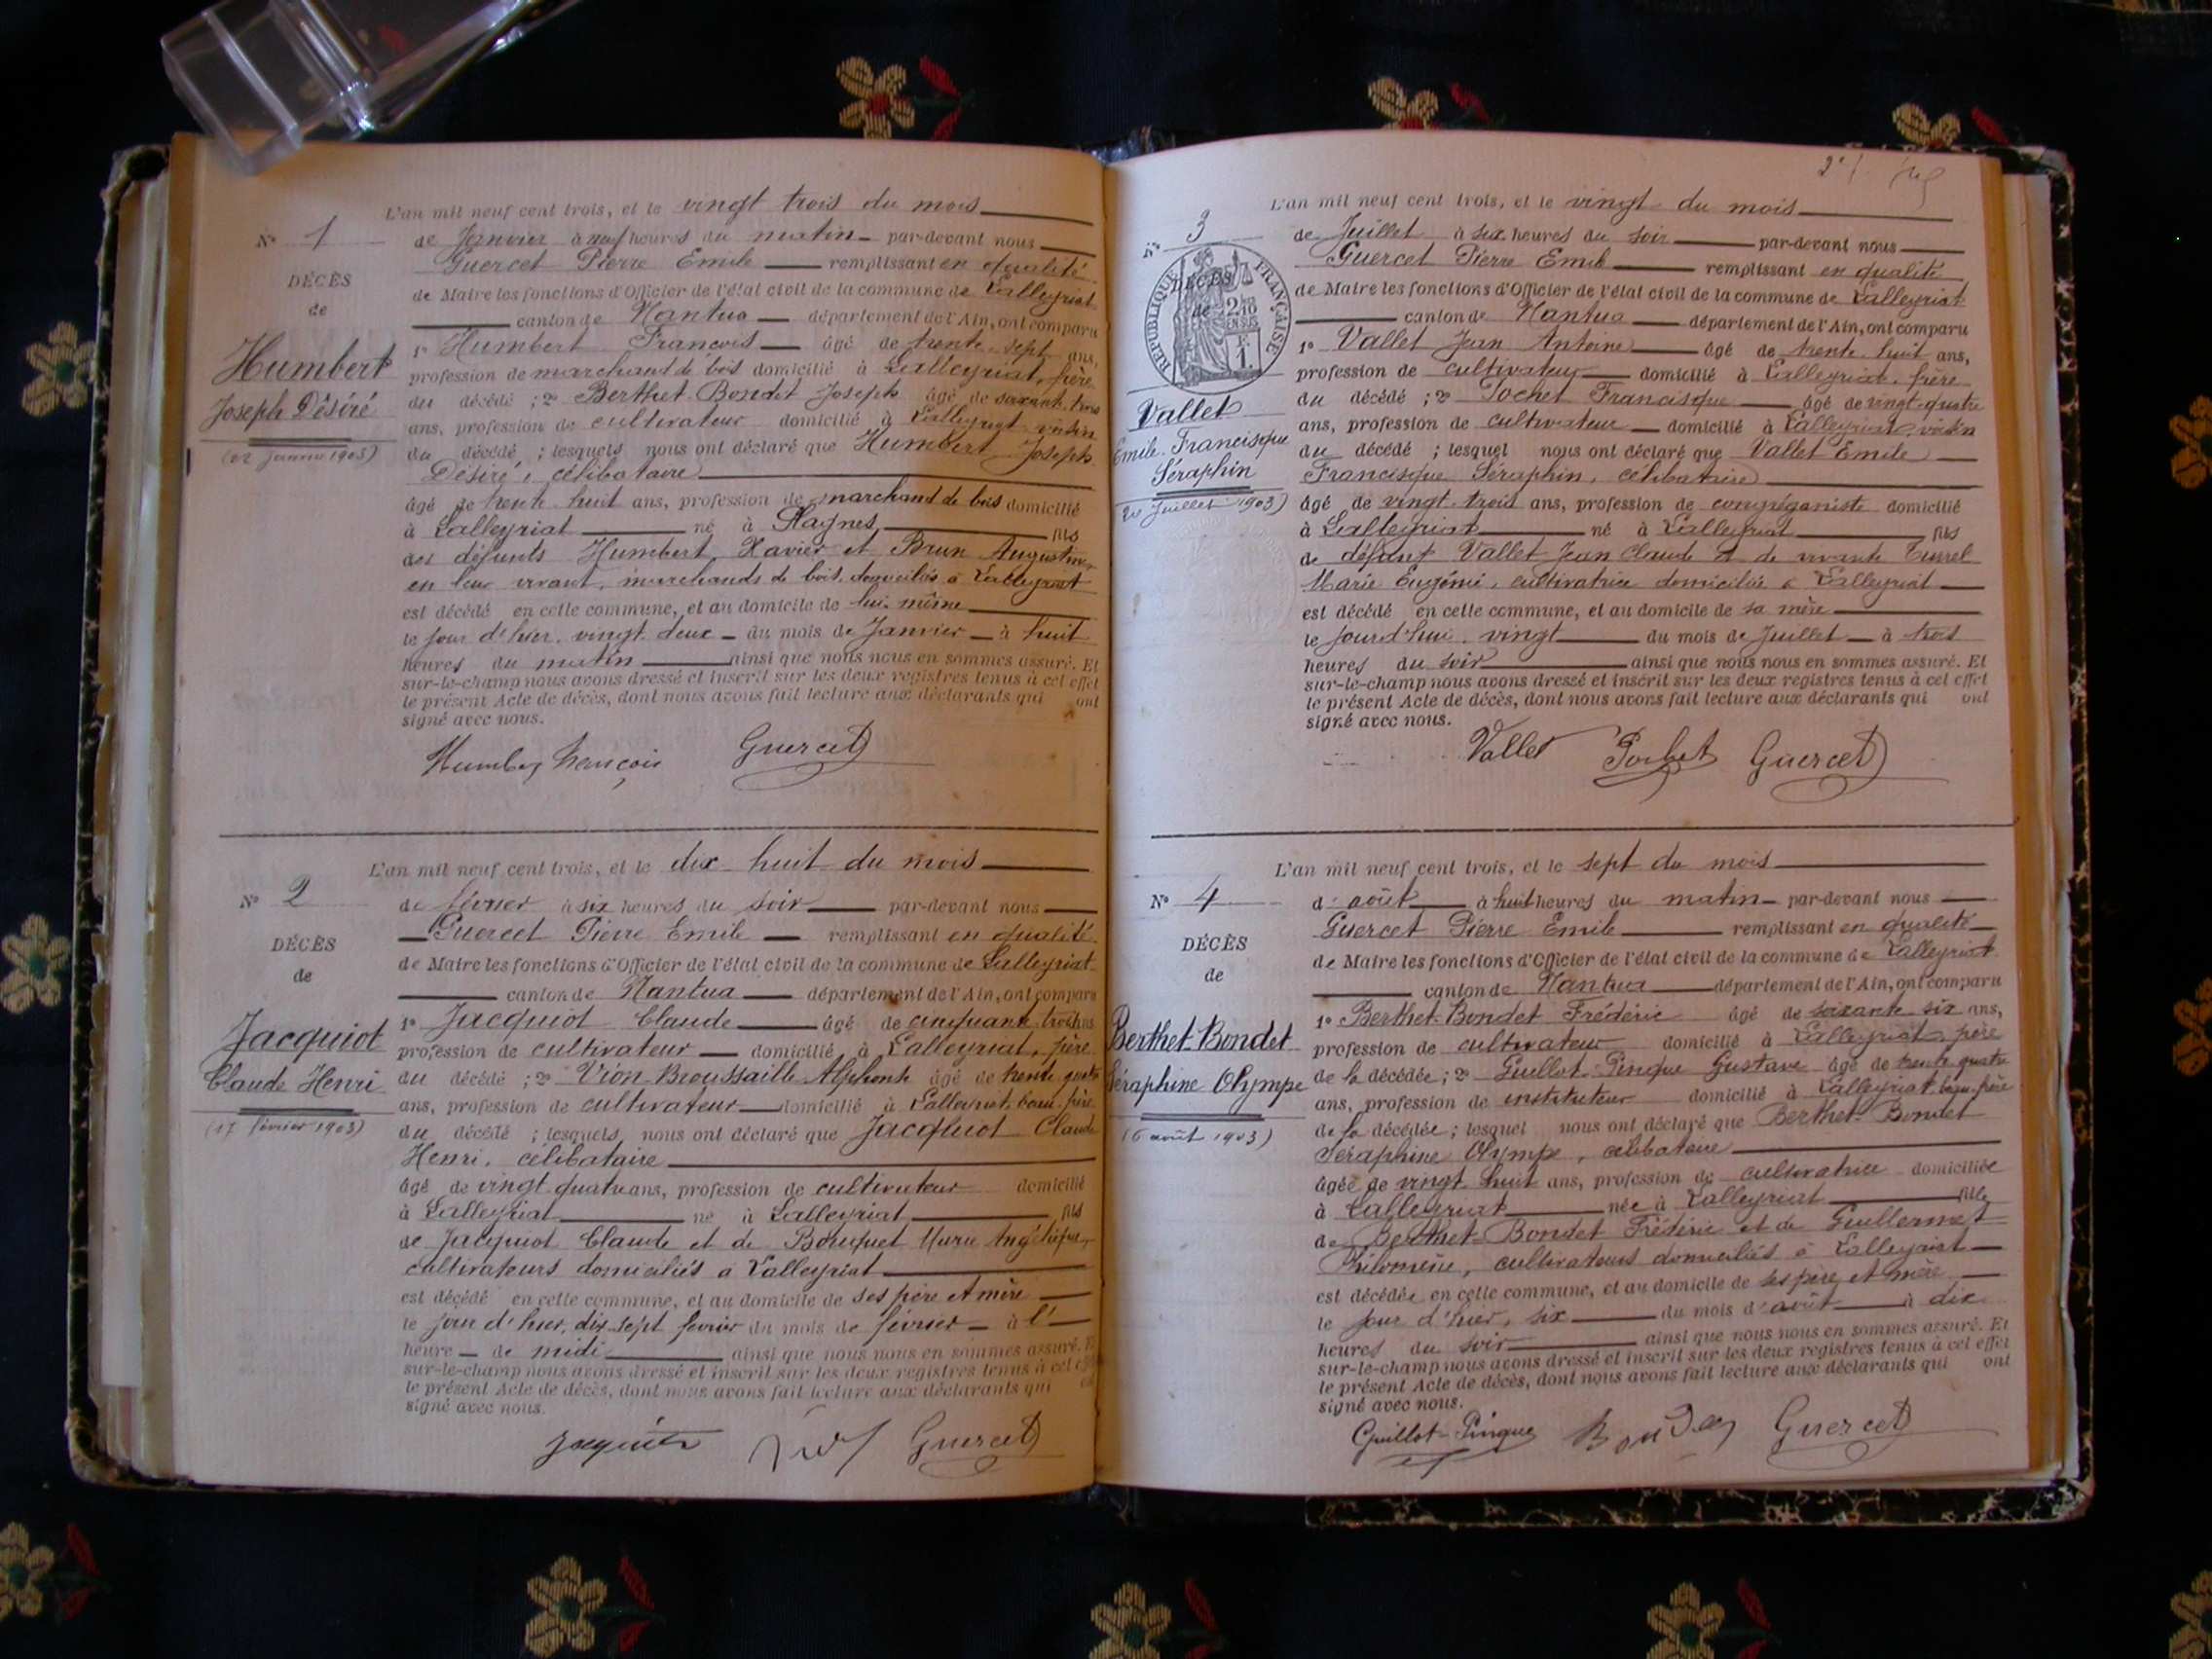 L'an mil neuf cent trois, et le vingt trois du mois
N° 1
de Janvier à neuf heures du matin par-devant nous
Guercet Pierre Emile remplissant en qualité
DÉCÈS
de Maire les fonctions d'Officier de l'état civil de la commune de Lalleyriat
de
canton de Nantua département de l'Ain, ont comparu
1° Humbert François âgé de trente-sept ans,
Humbert
profession de marchand de bois domicilié à Lalleyriat, frère
Joseph Désiré
du décédé ; 2° Berthet-Bondet Joseph âgé de soixante trois
ans, profession de cultivateur domicilié à Lalleyriat voisin
(22 Janvier 1903)
du décédé ; lesquels nous ont déclaré que Humbert Joseph
Désiré, célibataire
âgé de trente huit ans, profession de marchand de bois domicilié
à Lalleyriat né à fils
des défunts Humbert Xavier et Brun Augustine
en leur vivant, marchands de bois domiciliés à Lalleyriat
est décédé en cette commune, et au domicile de lui-même
le jour d'hier vingt deux du mois de Janvier à huit
heures du matin ainsi que nous nous en sommes assuré. Et
sur-le-champ nous avons dressé et inscrit sur les deux registres tenus à cet effet
le présent Acte de décès, dont nous avons fait lecture aux déclarants qui ont
signé avec nous.
Humbert françois Guercet
L'an mil neuf cent trois, et le dix-huit du mois
N° 2
de février à six heures du soir par-devant nous
Guercet Pierre Emile remplissant en qualité
DÉCÈS
de Maire les fonctions d'Officier de l'état civil de la commune de Lalleyriat
de
canton de Nantua département de l'Ain, ont comparu
1° Jacquiot Claude âgé de cinquante trois ans
Jacquiot
profession de cultivateur domicilié à Lalleyriat, père
Claude Henri
du décédé ; 2° Vion-Broussaille Alphonse âgé de trente quatre
ans, profession de cultivateur domicilié à Lalleyriat, beau-frère
(17 février 1903)
du décédé ; lesquels nous ont déclaré que Jacquiot Claude
Henri, célibataire
âgé de vingt quatre ans, profession de cultivateur domicilié
à Lalleyriat né à Lalleyriat fils
de Jacquiot Claude et de Bouquet Marie Angélique,
cultivateurs domiciliés à Lalleyriat
est décédé en cette commune, et au domicile de ses père et mère
le jour d'hier, dix-sept février du mois de février à l'
heure de midi ainsi que nous nous en sommes assuré. Et
sur-le-champ nous avons dressé et inscrit sur les deux registres tenus à cet effet
le présent Acte de décès, dont nous avons fait lecture aux déclarants qui ont
signé avec nous.
Jacquiot Guercet
L'an mil neuf cent trois, et le vingt du mois
N° 3
de Juillet à six heures du soir par-devant nous
Guercet Pierre Emile remplissant en qualité
RÉPUBLIQUE FRANÇAISE
DÉCÈS
de Maire les fonctions d'Officier de l'état civil de la commune de Lalleyriat
de
canton de Nantua département de l'Ain, ont comparu
1° Vallet Jean Antoine âgé de trente-huit ans,
profession de cultivateur domicilié à Lalleyriat, frère
Vallet
du décédé ; 2° Pochet Francisque âgé de vingt-quatre
Emile Francisque
ans, profession de cultivateur domicilié à Lalleyriat, voisin
Séraphin
du décédé ; lesquel nous ont déclaré que Vallet Emile
Francisque Séraphin, célibataire
(20 Juillet 1903)
âgé de vingt trois ans, profession de congréganiste domicilié
à Lalleyriat né à Lalleyriat fils
de défunt Vallet Jean Claude et de vivante Turrel
Marie Eugénie, cultivatrice domiciliée à Lalleyriat
est décédé en cette commune, et au domicile de sa mère
le jour d'hui vingt du mois de Juillet à trois
heures du soir ainsi que nous nous en sommes assuré. Et
sur-le-champ nous avons dressé et inscrit sur les deux registres tenus à cet effet
le présent Acte de décès, dont nous avons fait lecture aux déclarants qui ont
signé avec nous.
Vallet Pochet Guercet
L'an mil neuf cent trois, et le sept du mois
N° 4
d'août à huit heures du matin par-devant nous
Guercet Pierre Emile remplissant en qualité
DÉCÈS
de Maire les fonctions d'Officier de l'état civil de la commune de Lalleyriat
de
canton de Nantua département de l'Ain, ont comparu
1° Berthet-Bondet Frédéric âgé de soixante six ans,
Berthet-Bondet
profession de cultivateur domicilié à Lalleyriat, père
Séraphine Olympe
de la décédée ; 2° Guillot-Pingue Gustave âgé de trente quatre
ans, profession de instituteur domicilié à Lalleyriat beau-frère
(6 août 1903)
de la décédée ; lesquel nous ont déclaré que Berthet-Bondet
Séraphine Olympe, célibataire
âgée de vingt-huit ans, profession de cultivatrice domiciliée
à Lalleyriat née à Lalleyriat fille
de Berthet-Bondet Frédéric et de Guillermet
Philomène, cultivateurs domiciliés à Lalleyriat
est décédée en cette commune, et au domicile de ses père et mère
le jour d'hier, six du mois d'août à dix
heures du soir ainsi que nous nous en sommes assuré. Et
sur-le-champ nous avons dressé et inscrit sur les deux registres tenus à cet effet
le présent Acte de décès, dont nous avons fait lecture aux déclarants qui ont
signé avec nous.
Guillot-Pingue Bondet Guercet